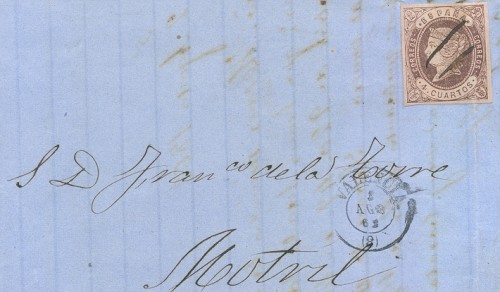 ESPAÑA
CORREOS
CORREOS
4 CUARTOS
S D Fran^co de la Torre
3
AGO
62
(2)
Motril